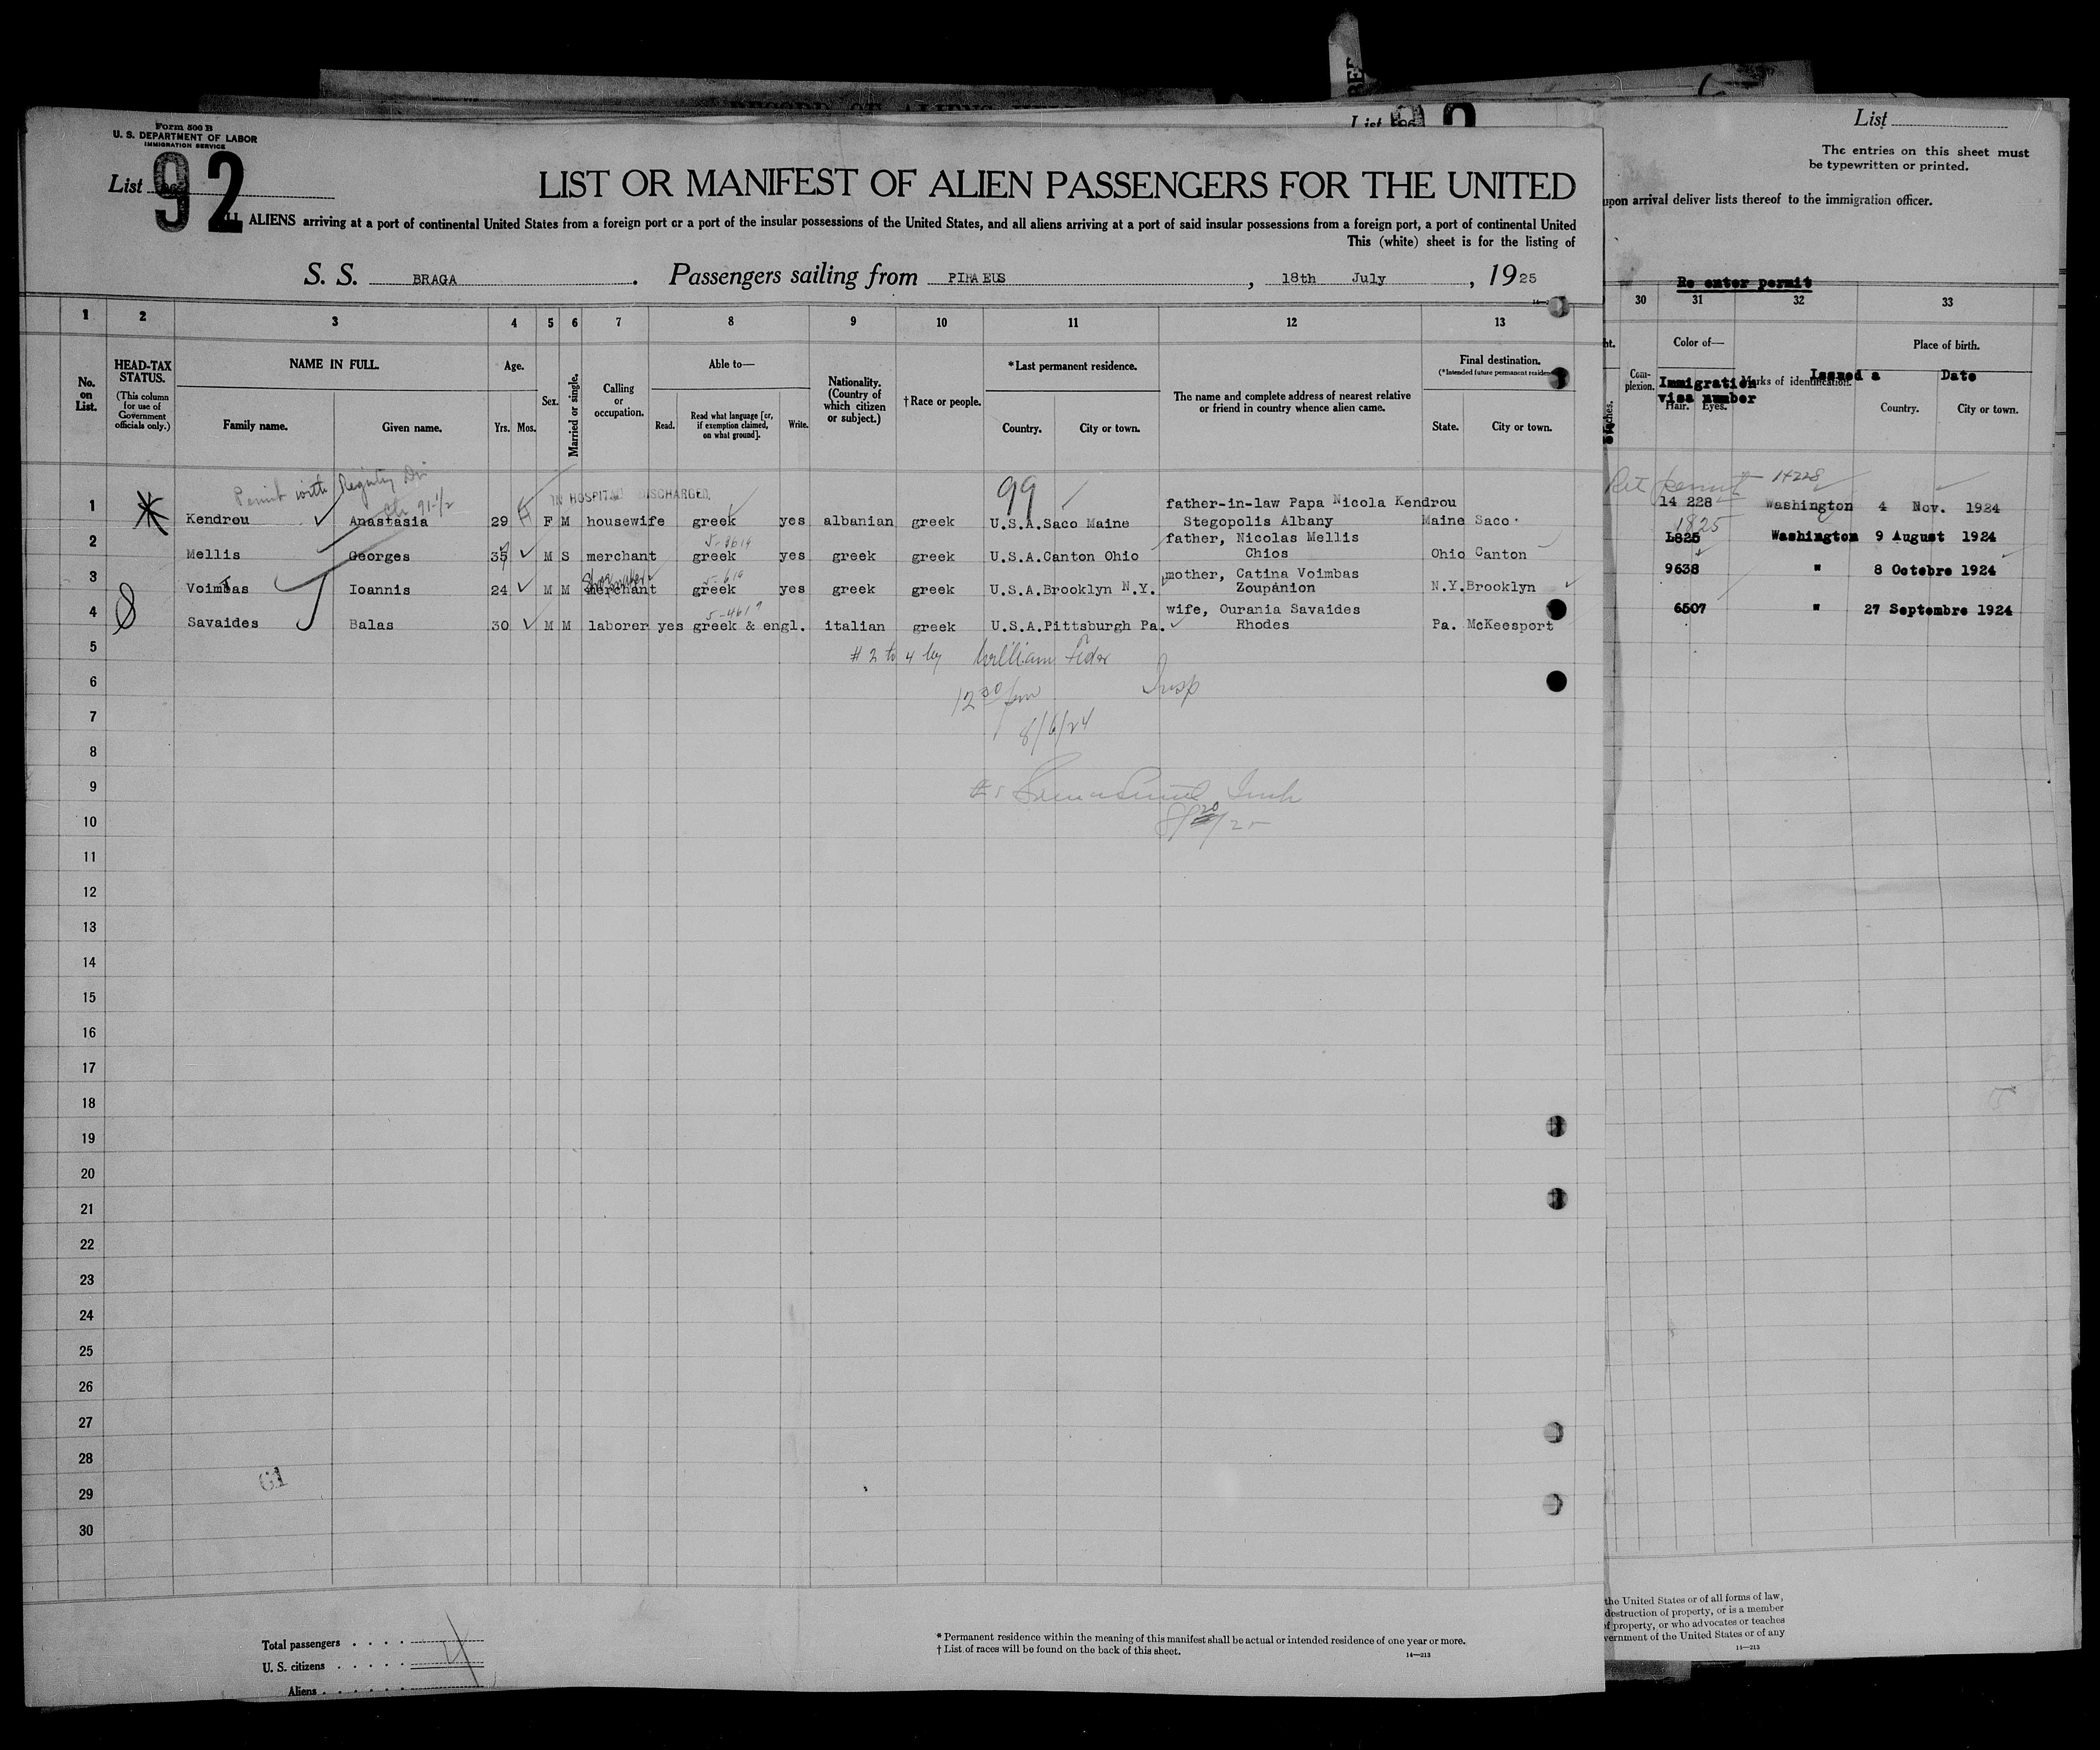 Form 500 B
U. S. DEPARTMENT OF LABOR
IMMIGRATION SERVICE
List 92
LIST OR MANIFEST OF ALIEN PASSENGERS FOR THE UNITED
ALL ALIENS arriving at a port of continental United States from a foreign port or a port of the insular possessions of the United States, and all aliens arriving at a port of said insular possessions from a foreign port, a port of continental United
This (white) sheet is for the listing of
S. S. BRAGA. Passengers sailing from PIRAEUS, 18th July, 1925
1 2 3 4 5 6 7 8 9 10 11 12 13
No. on List.
HEAD-TAX STATUS.
(This column for use of Government officials only.)
NAME IN FULL.
Family name. Given name.
Age.
Yrs. Mos.
Sex.
Married or single.
Calling or occupation.
Able to—
Read. Read what language [or, if exemption claimed, on what ground]. Write.
Nationality. (Country of which citizen or subject.)
† Race or people.
* Last permanent residence.
Country. City or town.
The name and complete address of nearest relative or friend in country whence alien came.
Final destination.
(* Intended future permanent residence)
State. City or town.
Permit with Registry Div
IN HOSPITAL DISCHARGED.
99
1 Kendrou Anastasia 29 F M housewife greek yes albanian greek U.S.A. Saco Maine father-in-law Papa Nicola Kendrou Stegopolis Albany Maine Saco
2 Mellis Georges 35 M S merchant greek yes greek greek U.S.A. Canton Ohio father, Nicolas Mellis Chios Ohio Canton
3 Voimbas Ioannis 24 M M merchant greek yes greek greek U.S.A. Brooklyn N.Y. mother, Catina Voimbas Zoupanion N.Y. Brooklyn
4 Savaides Balas 30 M M laborer yes greek & engl. italian greek U.S.A. Pittsburgh Pa. wife, Ourania Savaides Rhodes Pa. McKeesport
5
# 2 to 4 by William
6
12 30 pm Insp
7
8/6/24
8
9
10
11
12
13
14
15
16
17
18
19
20
21
22
23
24
25
26
27
28
29
30
61
Total passengers . . . .
U. S. citizens . . . . .
Aliens . . . . . .
4
* Permanent residence within the meaning of this manifest shall be actual or intended residence of one year or more.
† List of races will be found on the back of this sheet.
14—213
List
The entries on this sheet must
be typewritten or printed.
upon arrival deliver lists thereof to the immigration officer.
Re enter permit
30 31 32 33
Complexion.
Color of—
Hair. Eyes.
Marks of identification.
Place of birth.
Country. City or town.
Immigration visa number
Issued a
Date
Ret permit 14228
14 228 Washington 4 Nov. 1924
1825
1825 Washington 9 August 1924
9638 " 8 Octobre 1924
6507 " 27 Septembre 1924
the United States or of all forms of law,
destruction of property, or is a member
of property, or who advocates or teaches
vernment of the United States or of any
14—213